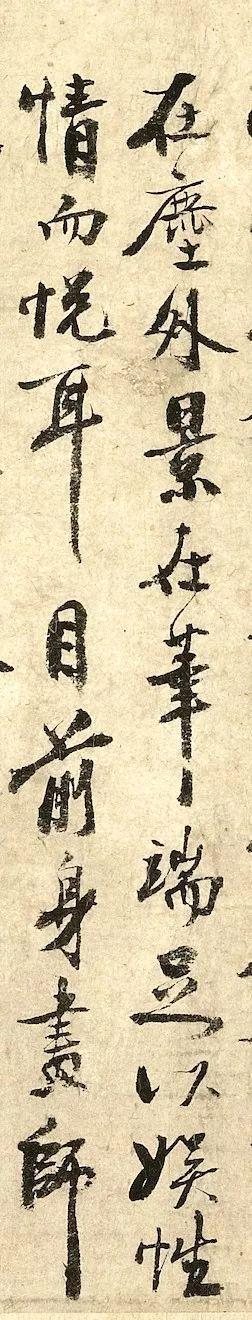 在塵外景在筆端足以娛性
情而悅耳目前身畫師